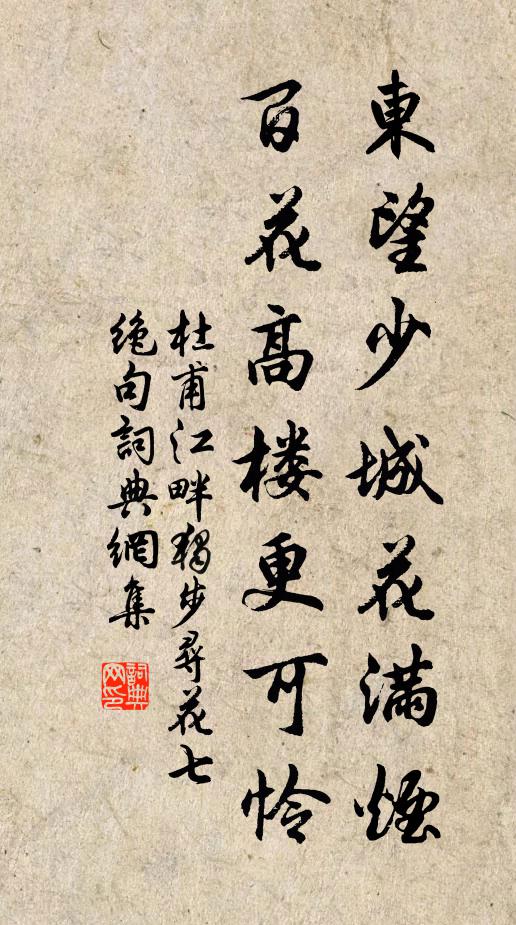 東望少城花滿煙
百花高楼更可怜
杜甫江畔獨步尋花七
绝句詞典網集
詞典网印